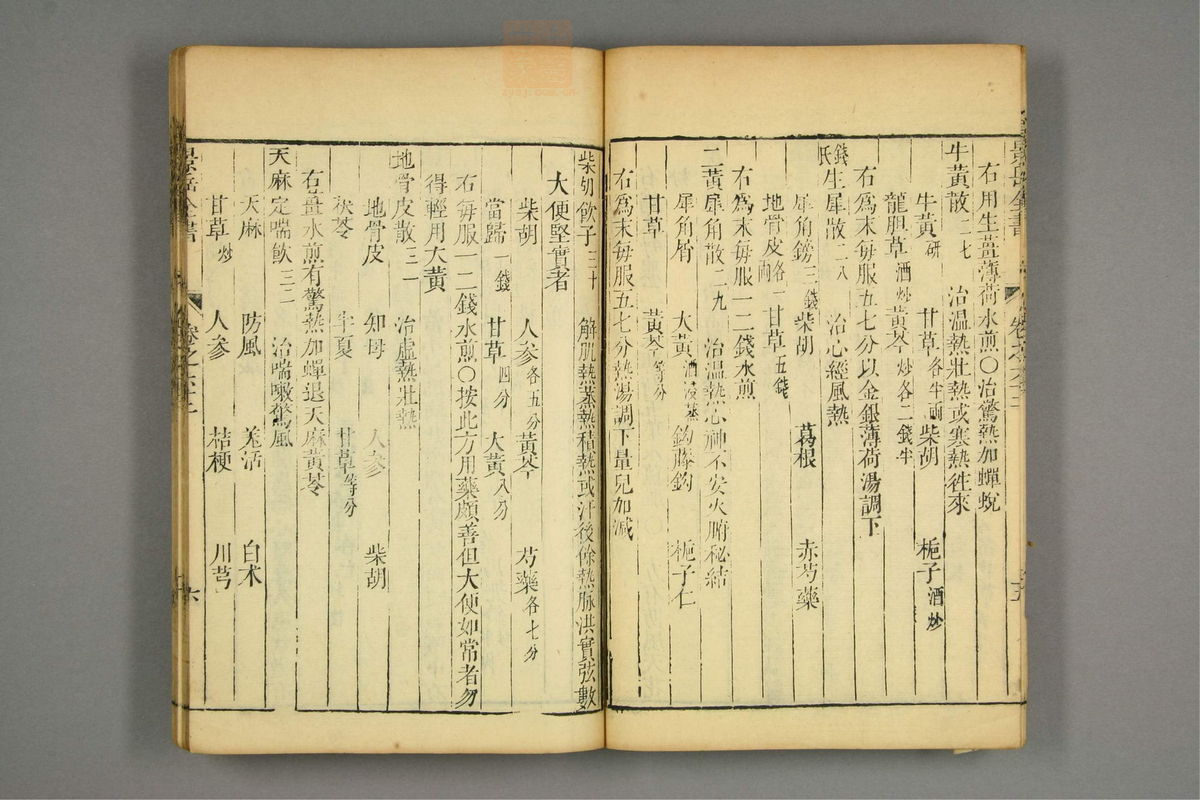 右用生薑薄荷水煎○治驚熱加蟬蛻
牛黃散二七　治温熱壯熱或寒熱徃來
牛黃研　甘草各半兩　柴胡　梔子酒炒
龍胆草酒炒　黃芩炒各二錢半
右為末每服五七分以金銀薄荷湯調下
錢氏生犀散二八　治心經風熱
犀角鎊三錢　柴胡　葛根　赤芍藥
地骨皮各一兩　甘草五錢
右為末每服一二錢水煎
二黃犀角散二九　治温熱心神不安火腑秘結
犀角屑　大黃酒浸蒸　鈎藤鈎　梔子仁
甘草　黃芩等分
右爲末每服五七分熱湯調下量兒加减
柴胡飲子三十　解肌熱蒸熱積熱或汗後餘熱脉洪實弦數
大便堅實者
柴胡　人參各五分　黃芩　芍藥各七分
當歸一錢　甘草四分　大黃八分
右每服一二錢水煎○按此方用藥頗善但大便如常者勿
得輕用大黃
地骨皮散三一　治虛熱壯熱
地骨皮　知母　人參　柴胡
茯苓　半夏　甘草等分
右薑水煎有驚熱加蟬退天麻黃芩
天麻定喘飲三二　治喘嗽驚風
天麻　防風　羌活　白术
甘草炒　人參　桔梗　川芎
景岳全書
卷之六十二
六